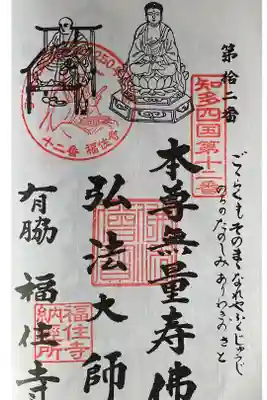 第拾二番
知多四国第十二番
ごくらくもそのまゝなれやふくじゅうじ
のちのたのしみありわきのさと
本尊無量寿佛
弘法大師
有脇 福住寺
十二番 福住寺
福住寺
納経所